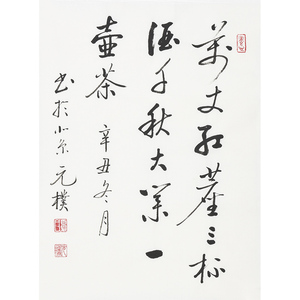 万丈红尘三杯
酒千秋大业一
壶茶 辛丑冬月
书于北京元朴